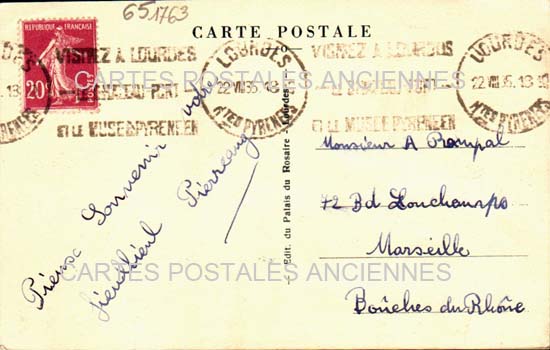 651763
CARTE POSTALE
REPUBLIQUE FRANÇAISE
20 C
VISITEZ A LOURDES
LE CHATEAU-FORT
ET LE MUSEE PYRENEEN
LOURDES
22 VIII 35 18
HTES PYRENEES
VISITEZ A LOURDES
LE CHATEAU-FORT
ET LE MUSEE PYRENEEN
LOURDES
22 VIII 35 18
HTES PYRENEES
CARTES POSTALES ANCIENNES
Pieuse Souvenir votre
Pierrang
Edit. du Palais du Rosaire - Lourdes
Monsieur A Prompal
72 Bd Lonchamps
Marseille
Bouches du Rhône
CARTES POSTALES ANCIENNES